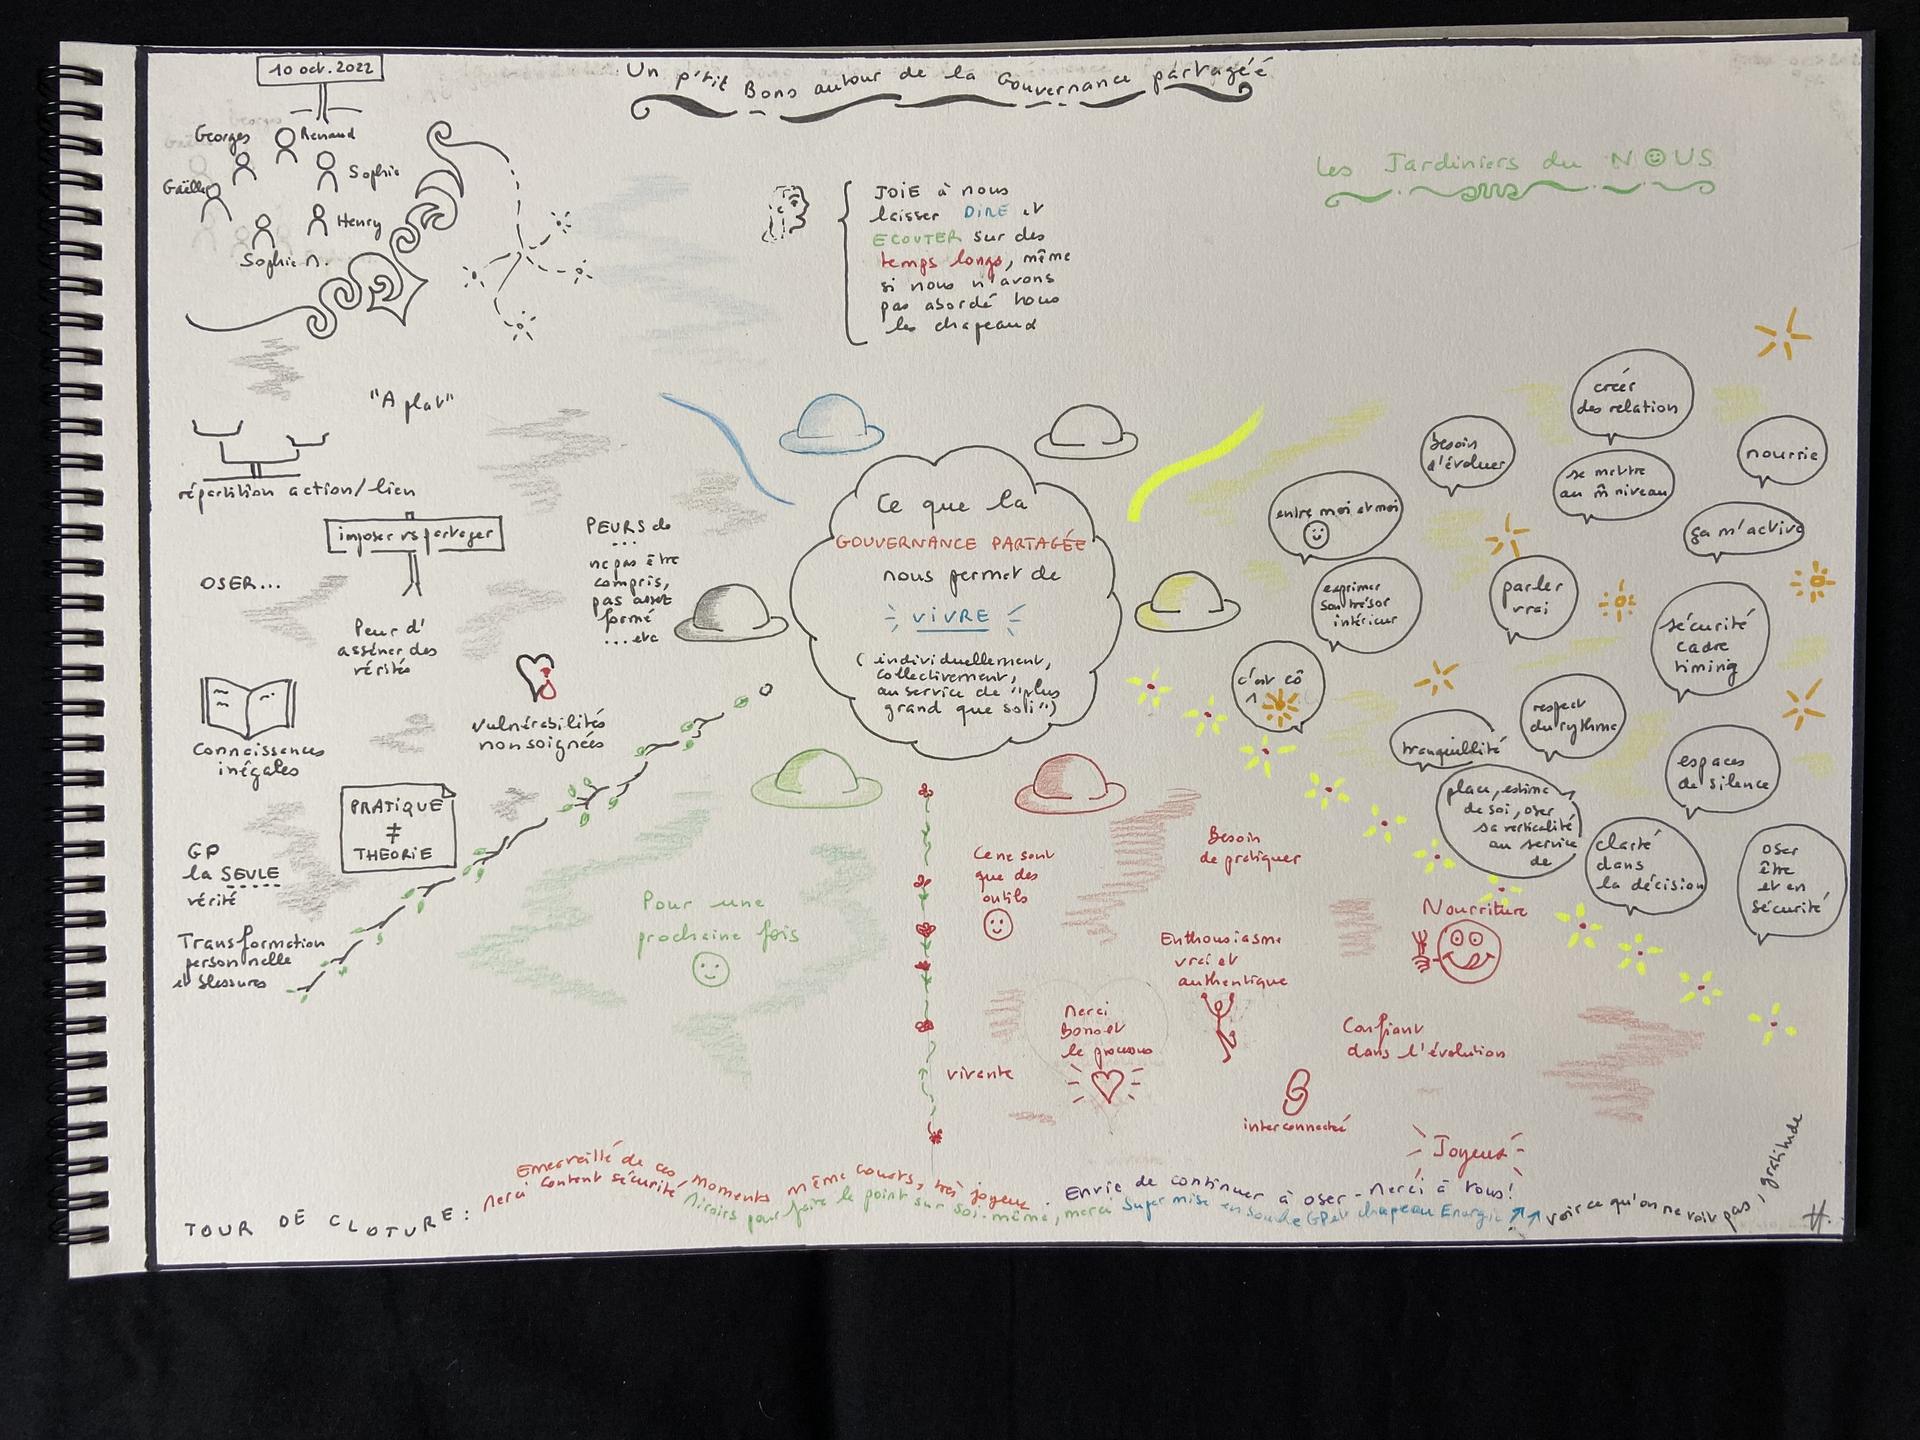 10 oct. 2022
Un p'tit Bono autour de la Gouvernance partagéé
Les Jardiniers du NOUS
Georges
Renaud
Gaëlle
Sophie
Henry
Sophie n.
JOIE à nous
laisser DIRE et
ECOUTER sur des
temps longs, même
si nous n'avons
pas abordé tous
les chapeaux
"A plat"
répartition action/lien
imposer vs partager
OSER...
Peur d'
asséner des
vérités
PEURS de
...
ne pas être
compris,
pas assez
formé
...etc
Connaissances
inégales
vulnérabilités
non soignées
PRATIQUE
≠
THEORIE
GP
la SEULE
vérité
Transformation
personnelle
et blessures
Ce que la
GOUVERNANCE PARTAGÉE
nous permet de
VIVRE
(individuellement,
collectivement,
au service de "plus
grand que soi")
créer
des relation
besoin
d'évoluer
nourrie
se mettre
au m̂ niveau
entre moi et moi
ça m'active
exprimer
son trésor
intérieur
parler
vrai
sécurité
cadre
timing
c'est cô
1
respect
du rythme
tranquillité
espaces
de silence
place, estime
de soi, oser
sa verticalité
au service
de
clarté
dans
la décision
oser
être
et en
sécurité
Pour une
prochaine fois
Ce ne sont
que des
outils
Besoin
de pratiquer
Nourriture
Enthousiasme
vrai et
authentique
Merci
Bono et
le processus
Confiant
dans l'évolution
vivante
interconnecté
Joyeux
TOUR DE CLOTURE:
Emerveillé de ces moments même courts, très joyeux.
Merci content sécurité
Miroirs pour faire le point sur soi-même, merci
Envie de continuer à oser - Merci à tous!
Super mise en bouche GP et chapeau Energie
voir ce qu'on ne voit pas, gratitude
H.